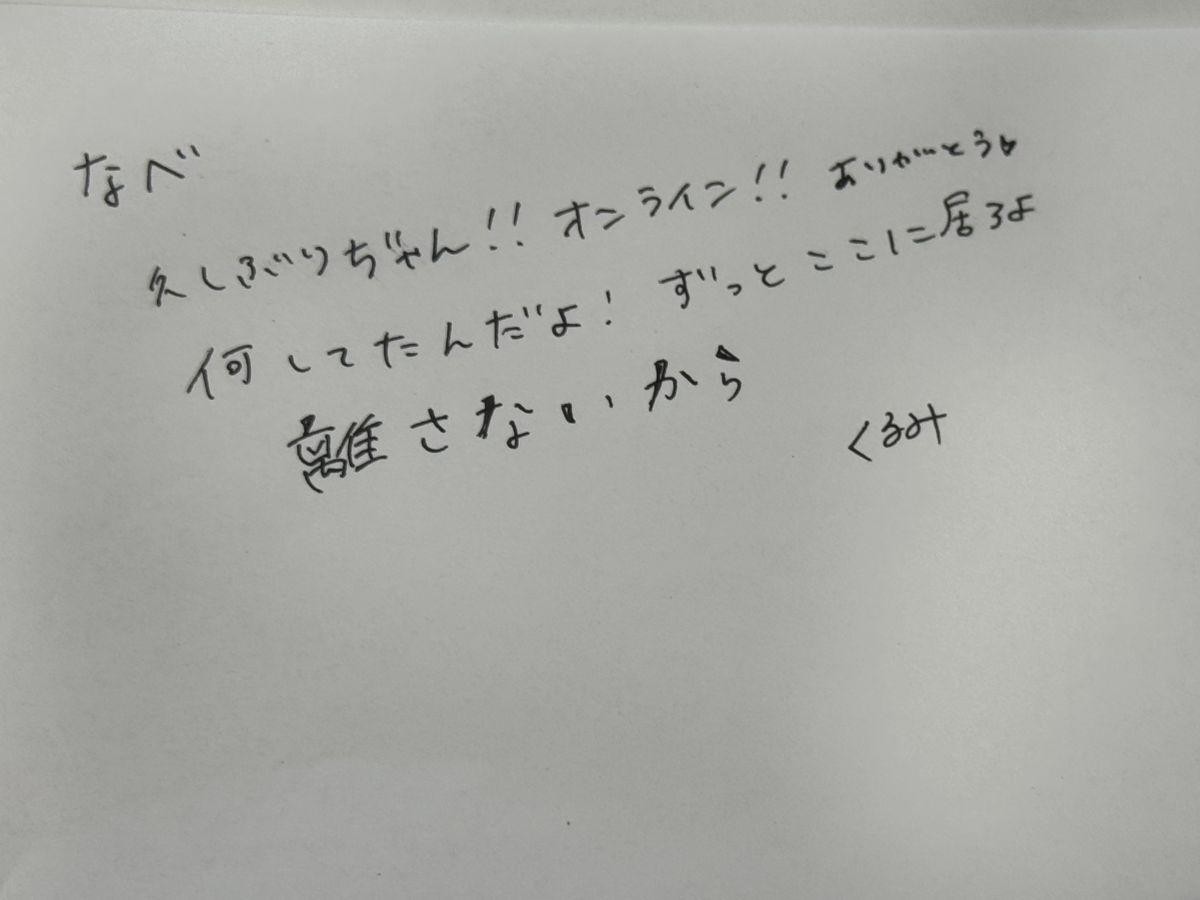 なべ
久しぶりぢゃん!! オンライン!! ありがとう♥
何してたんだよ! ずっとここに居るよ
離さないから
くるみ